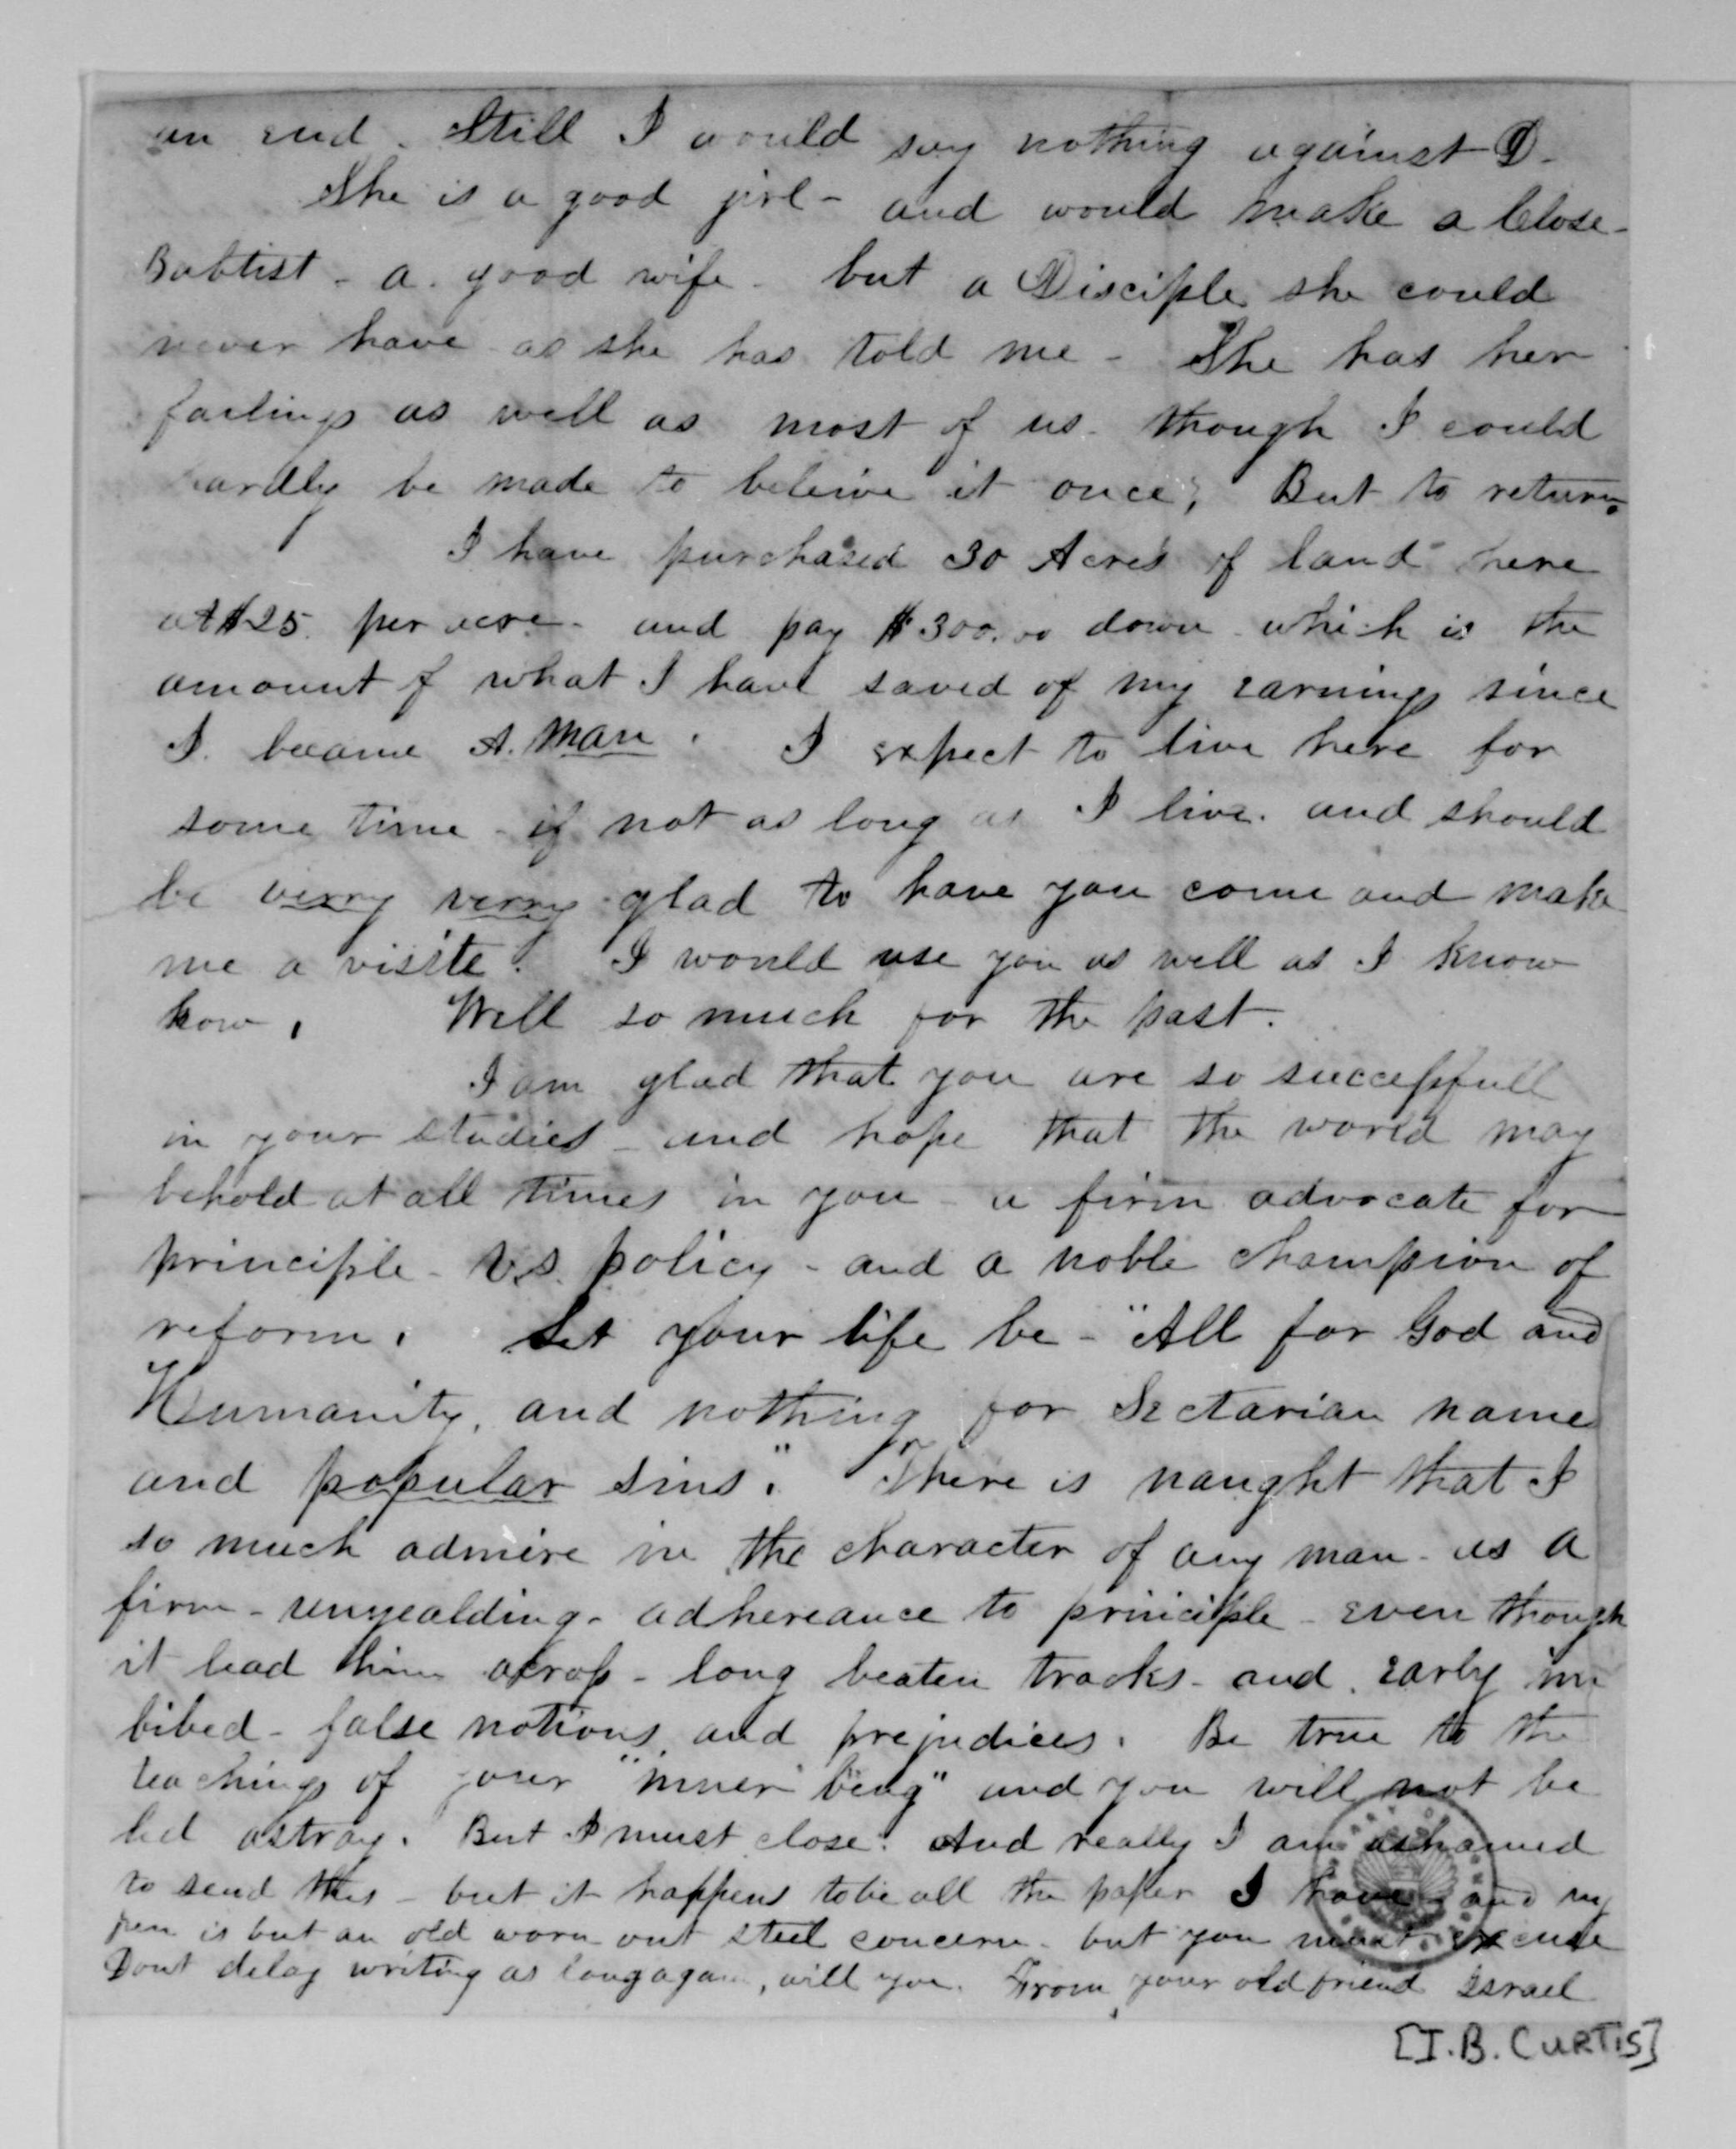 an end. Still I would say nothing against D.
She is a good girl - and would make a Close
Babtist - a good wife - but a Disciple she could
never have as she has told me - She has her
failings as well as most of us - though I could
hardly be made to beleive it once; But to return.
I have purchased 30 Acres of land here
at $25. per acre - and pay $300.00 down which is the
amount of what I have saved of my earnings since
I. became A. man. I expect to live here for
some time - if not as long as I live. and should
be verry verry glad to have you come and make
me a vissite. I would use you as well as I know
how. Well so much for the past.
I am glad that you are so successfull
in your studies - and hope that the world may
behold at all times in you - a firm advocate for
principle - vs. policy - and a noble champion of
reform. Let your life be - "All for God and
Humanity, and nothing for Sectarian name
and popular sins." There is naught that I
so much admire in the character of any man - as a
firm - unyealding - adhereance to principle - even though
it lead him across - long beaten tracks - and early im
bibed - false notions and prejudices. Be true to the
teachings of your "inner being" and you will not be
led astray. But I must close. And really I am ashamed
to send this - but it happens to be all the paper I have - and my
pen is but an old worn out steel concern - but you must excuse
Dont delay writing as long again, will you. From your old friend Israel
[I.B. CURTIS]